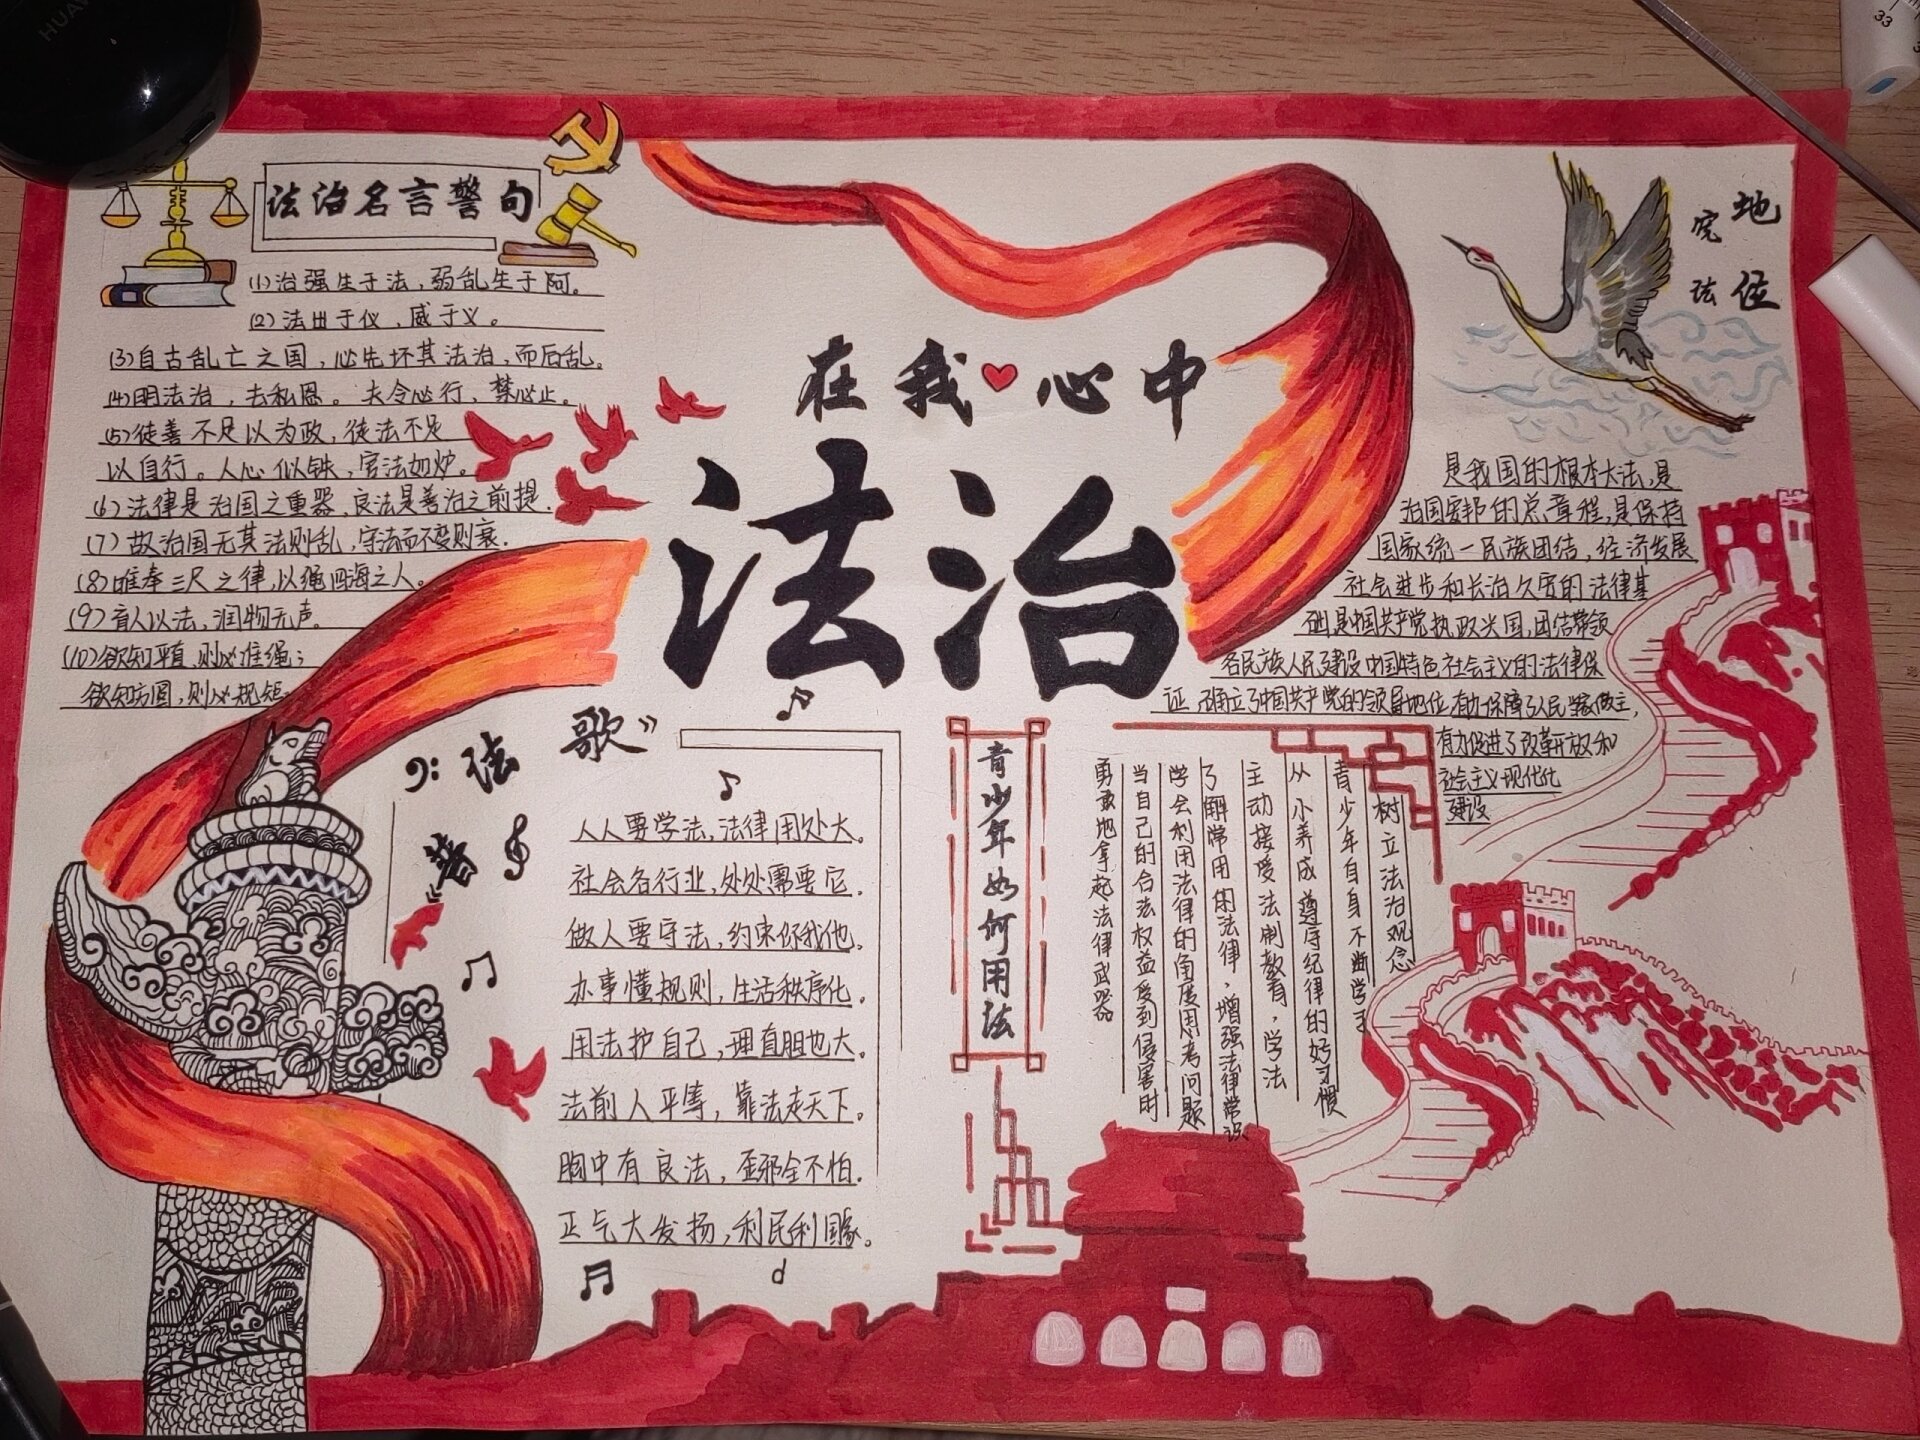 法治名言警句
(1)治强生于法，弱乱生于阿。
(2)法出于仪，威于义。
(3)自古乱亡之国，必先坏其法治，而后乱。
(4)明法治，去私恩。夫令必行，禁必止。
(5)徒善不足以为政，徒法不足
以自行。人心似铁，官法如炉。
(6)法律是治国之重器，良法是善治之前提.
(7)故治国无其法则乱，守法而不变则衰.
(8)唯奉三尺之律，以绳四海之人。
(9)育人以法，润物无声。
(10)欲知平直，则必准绳；
欲知方圆，则必规矩.
在我心中
法治
宪法
地位
是我国的根本大法，是
治国安邦的总章程，是保持
国家统一民族团结，经济发展
社会进步和长治久安的法律基
础是中国共产党执政兴国，团结带领
各民族人民建设中国特色社会主义的法律保
证，确立了中国共产党的领导地位有力保障了人民当家做主，
有力促进了改革开放和
社会主义现代化
建设
普法歌”
人人要学法，法律用处大。
社会各行业，处处需要它.
做人要守法，约束你我他.
办事懂规则，生活秩序化.
用法护自己，理直胆也大.
法前人平等，靠法走天下.
胸中有良法，歪邪全不怕.
正气大发扬，利民利国家。
青少年如何用法
树立法治观念
青少年自身不断学习
从小养成遵守纪律的好习惯
主动接受法制教育，学法
了解常用的法律，增强法律常识
学会利用法律的角度思考问题
当自己的合法权益受到侵害时
勇敢地拿起法律武器